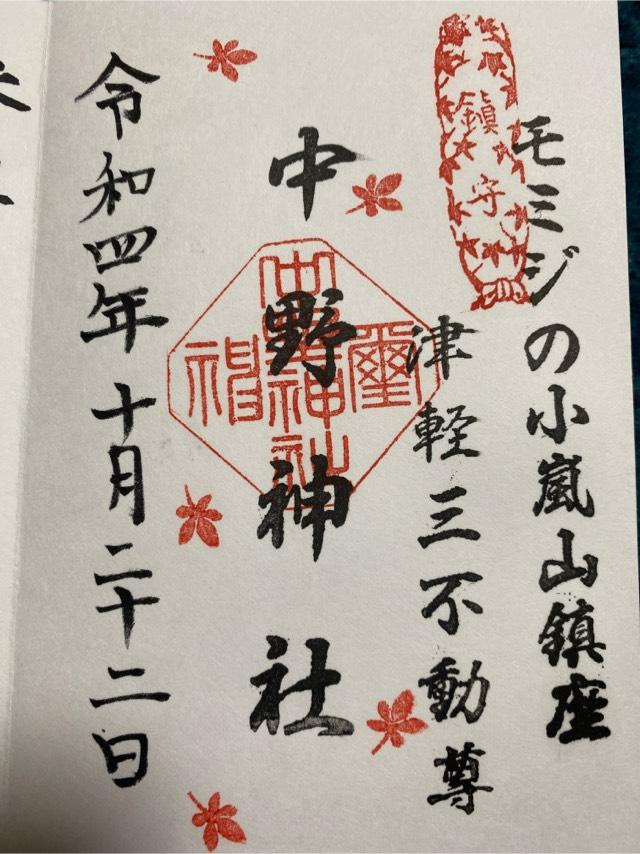 鎮守
モミジの小嵐山鎮座
津軽三不動尊
中野神社
中野神社
令和四年十月二十二日